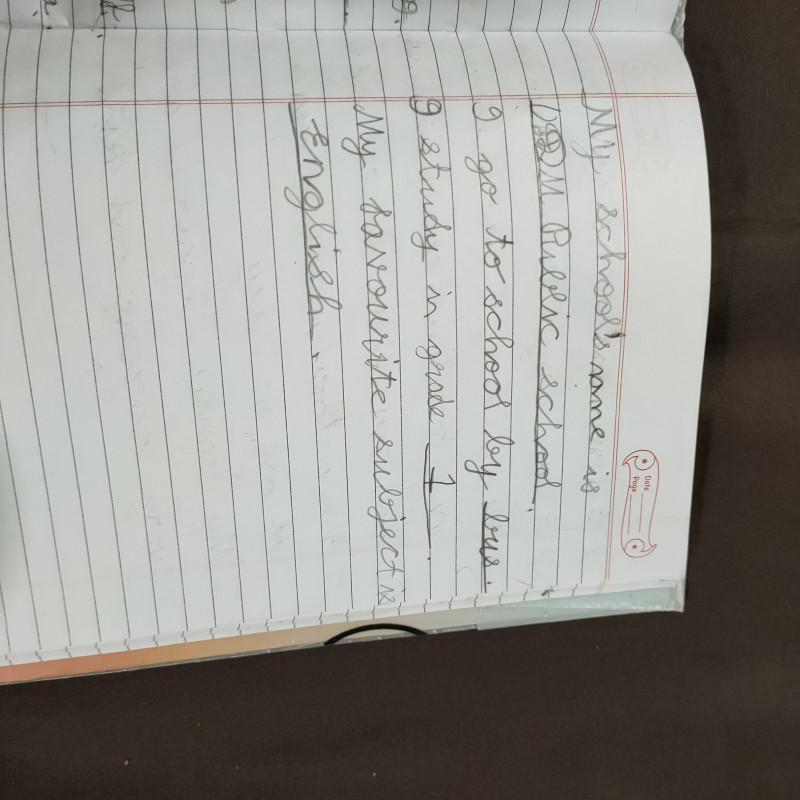 Date
Page
My school's name is
VDM Public school.
I go to school by bus.
I study in grade 1.
My favourite subject is
English.